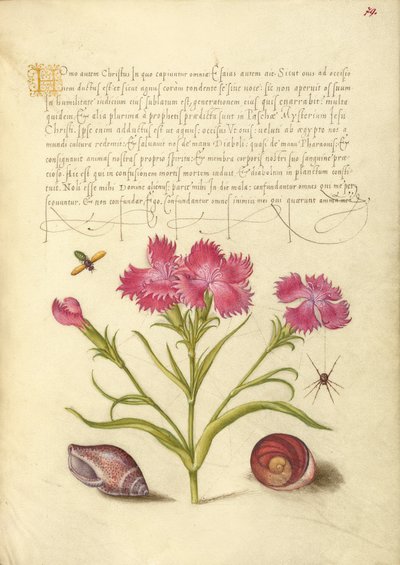 79.
Homo autem Christus In quo capiuntur omnia: Esaias autem ait: Sicut ouis ad occisio
nem ductus est: et sicut agnus coram tondente se sine uoce: sic non aperuit os suum
In humilitate iudicium eius sublatum est: generationem eius quis enarrabit: multa
quidem: Et alia plurima a prophetis prædicta sunt in Paschæ Mysterium Iesu
Christi: Ipse enim adductus est ut agnus: occisus Vt ouis: ueluti ab ægypto nos a
mundi cultura redemit: Et saluauit nos de manu Diaboli: quasi de manu Pharaonis: Et
consignauit animas nostras proprio spiritu: Et membra corporis nostri suo sanguine præ-
cioso. Hic est qui in confusionem mortis mortem induit, Et diabolum in planctum consti-
tuit. Noli esse mihi Domine alienus: parce mihi in die mala: confundantur omnes qui me per
secuntur, Et non confundar Ego. Confundantur omnes inimici mei qui quærunt animam meam